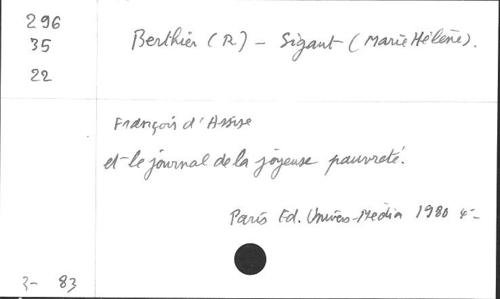 296
35
22
Berthier (R) - Sigant (Marie Hélène).
François d'Assise
et le journal de la joyeuse pauvreté.
Paris Ed. Univers-Média 1980 4°-
3- 83